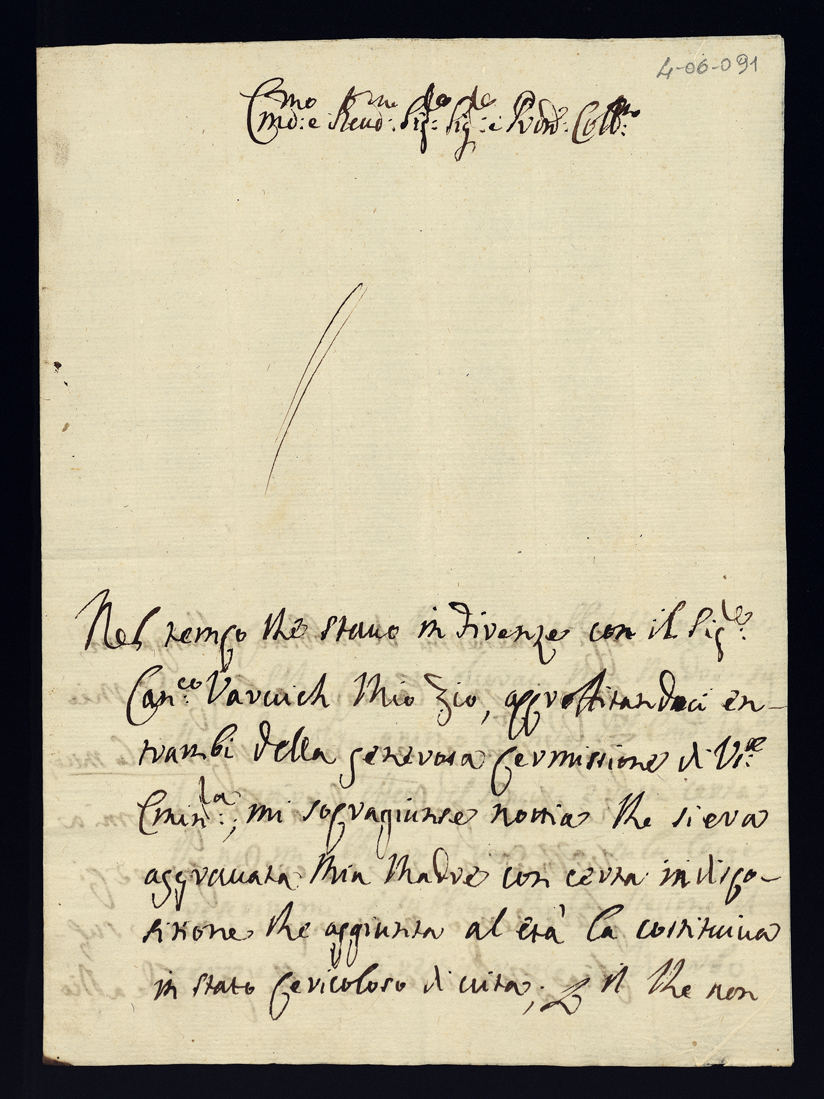 4-06-091
Em.mo Rev.mo Sig.re Sig.re e Pron.e Coll.mo
Nel tempo che stavo in Firenze con il Sig.re
Can.co Varvich Mio Zio, approffitandoci en-
trambi della generosa permissione di V.re
Emin.za; mi sopragiunse notitia che si era
aggravata Mia Madre con certa indispo-
sitione che aggiunta al età la costituiva
in stato pericoloso di vita; il che non